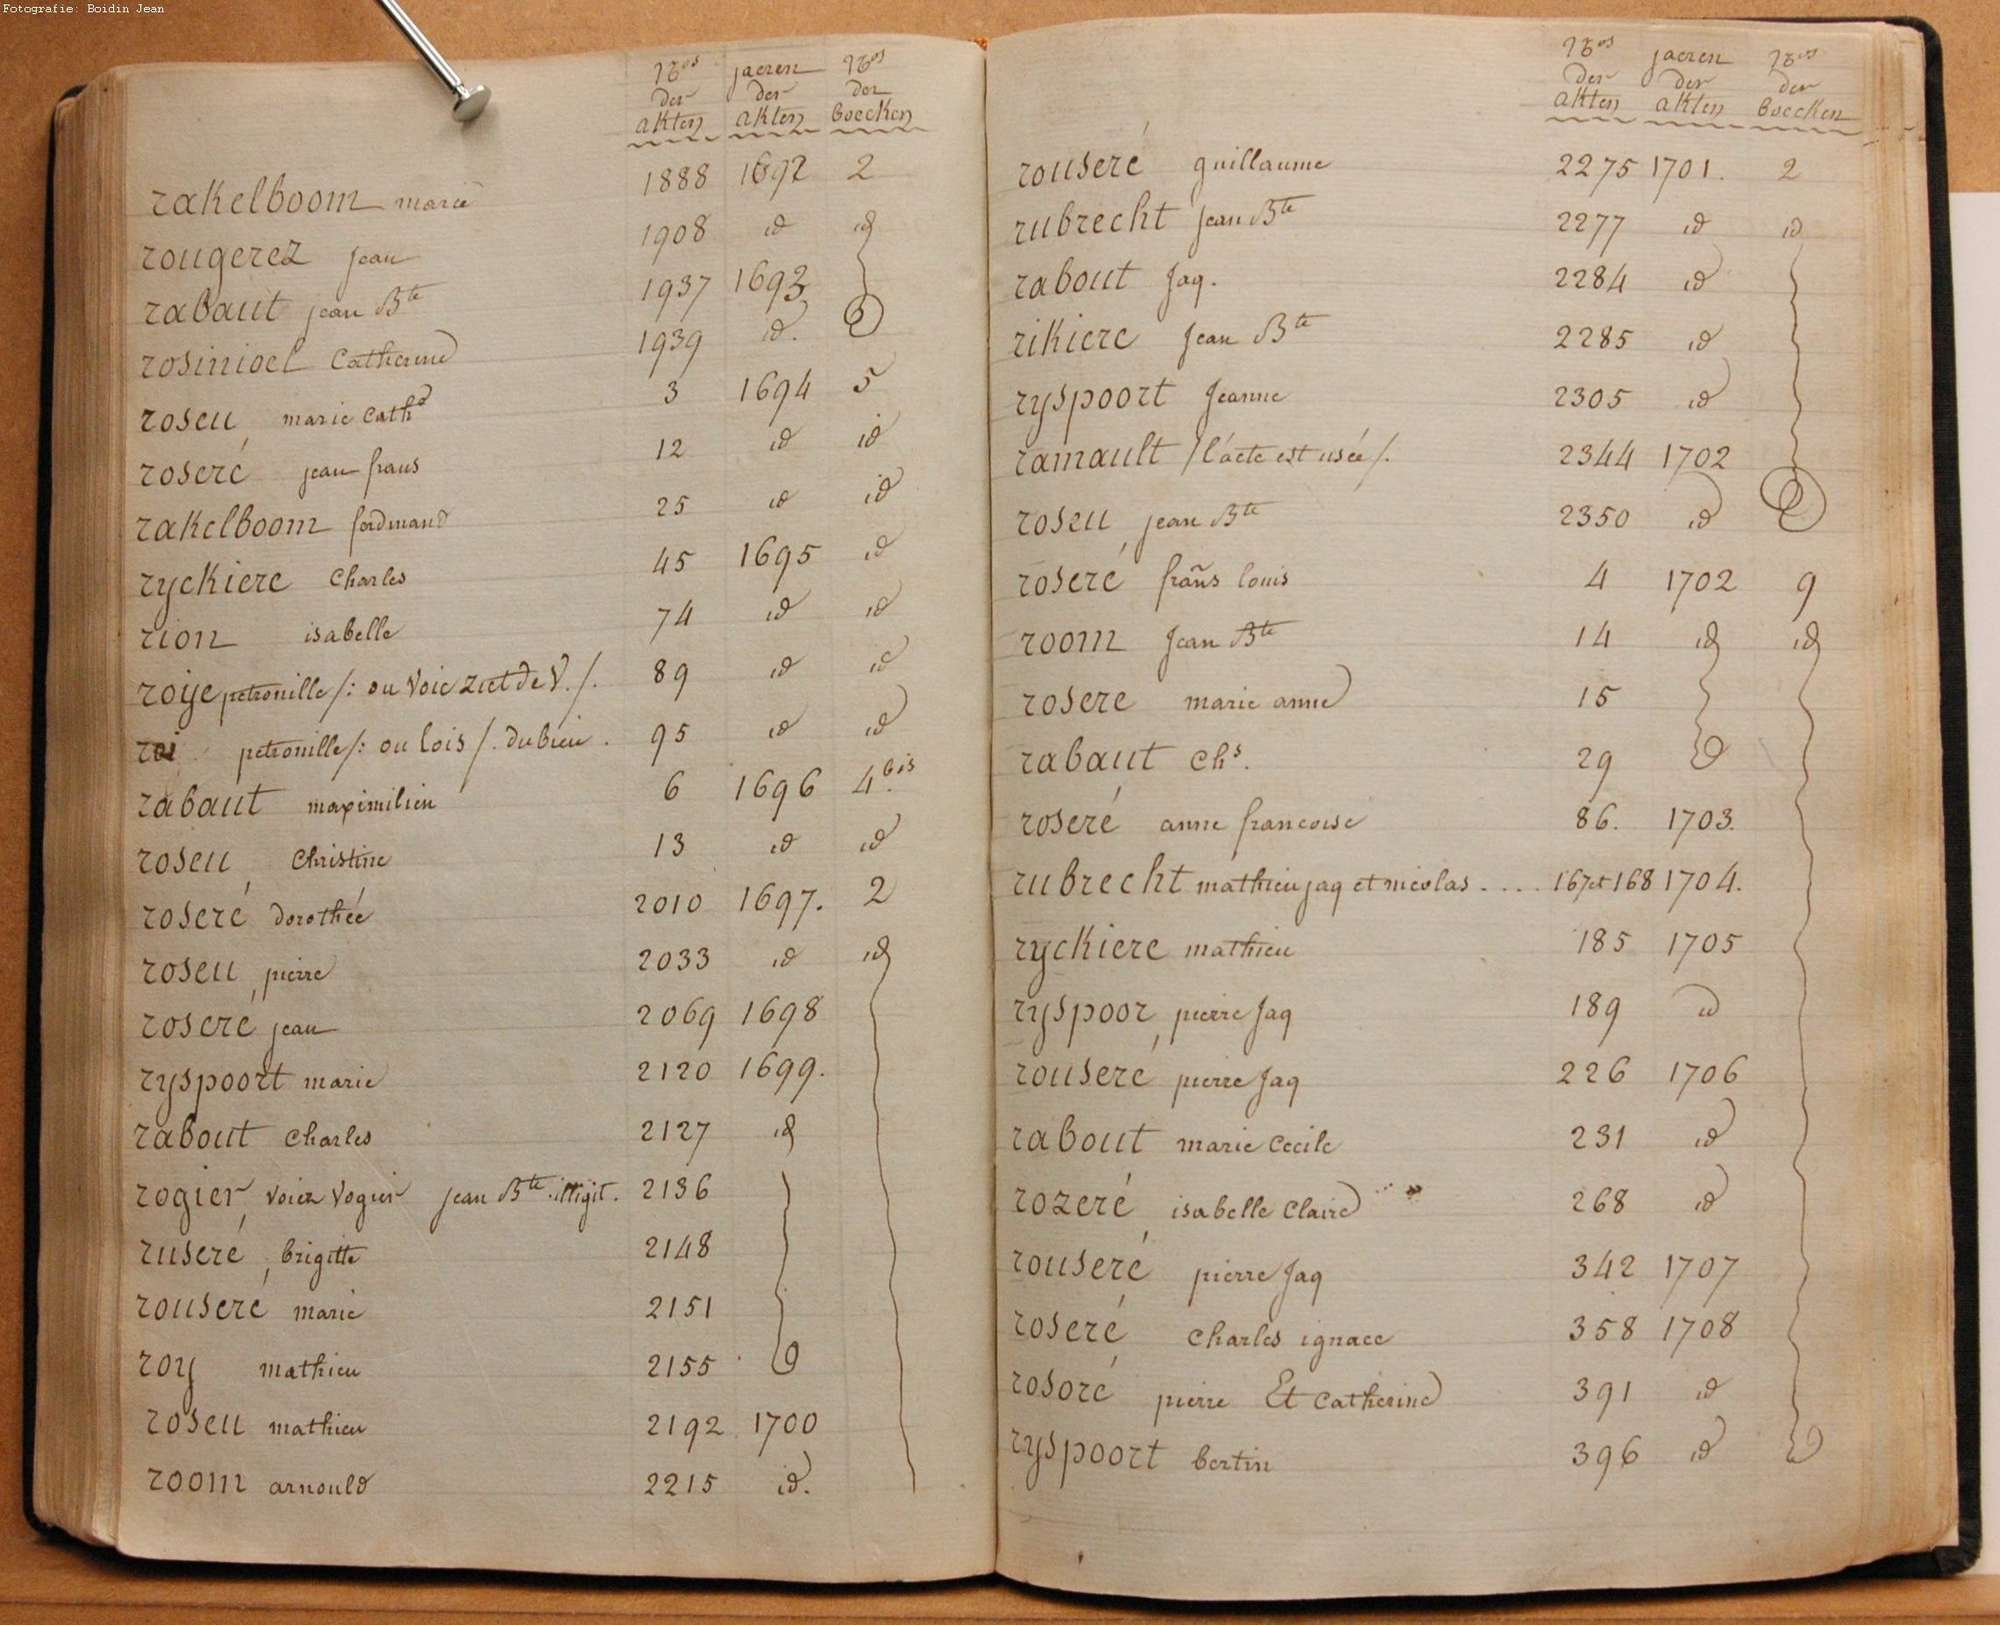 Fotografie: Boidin Jean
Nros jaeren Nros
der der der
akten akten boecken
rakelboom marie 1888 1692 2
rougerez jean 1908 id id
rabaut jean Bte 1937 1693
rosinioel Catherine 1939 id.
roseu, marie Cath 3 1694 5
roseré jean frans 12 id id
rakelboom ferdinand 25 id id
ryckiere Charles 45 1695 id
rion isabelle 74 id id
roije petronille /: ou Voie ziet de V. /. 89 id id
roi petronille /: ou lois /. dubieu. 95 id id
rabaut maximilien 6 1696 4 bis
roseu, Christine 13 id id
roseré dorothée 2010 1697. 2
roseu, pierre 2033 id id
roseré, jean 2069 1698
ryspoort marie 2120 1699.
rabout Charles 2127 id
rogier, Voiez Vogier jean Bte illigit. 2136
ruseré, brigitte 2148
rouseré, marie 2151
roy mathieu 2155
roseu mathieu 2192 1700
room arnould 2215 id.
Nros jaeren Nros
der der der
akten akten boecken
rouseré guillaume 2275 1701. 2
rubrecht jean Bte 2277 id id
rabout Jaq. 2284 id
rikiere Jean Bte 2285 id
ryspoort Jeanne 2305 id
ramault /l'acte est usée/. 2344 1702
roseu, jean Bte 2350 id
roseré frañs louis 4 1702 9
room Jean Bte 14 id id
rosere marie anne 15
rabaut Chs. 29 id
roseré anne francoise 86. 1703.
rubrecht mathieu jaq et nicolas .... 167 et 168 1704.
ryckiere mathieu 185 1705
ryspoor, pierre Jaq 189 id
rouseré, pierre Jaq 226 1706
rabout marie Cecile 231 id
rozeré, isabelle Claire 268 id
rouseré pierre Jaq 342 1707
roseré Charles ignace 358 1708
rosoré pierre Et Catherine 391 id
ryspoort bertin 396 id